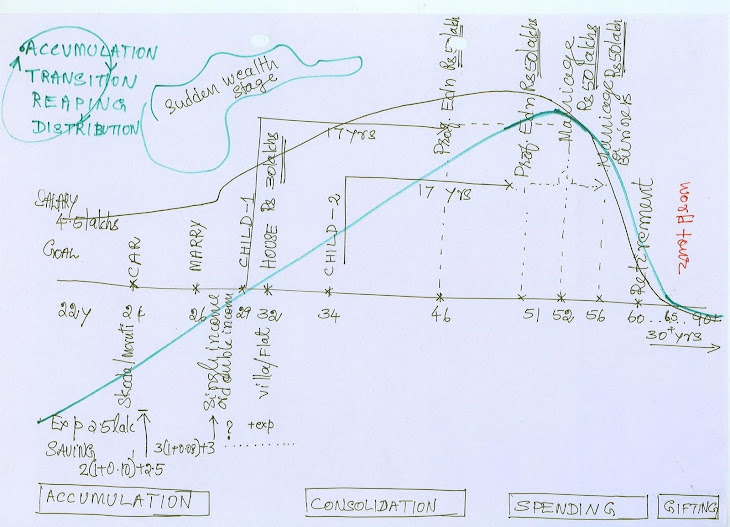 ACCUMULATION
TRANSITION
REAPING
DISTRIBUTION
Sudden wealth
stage
17 yrs
17 yrs
Prof. Edn Rs 50 lakhs
Prof. Edn Rs 50 lakhs
Marriage
Rs 50 lakhs
Marriage
Business
Rs 50 lakhs
SALARY
4.5 lakhs
GOAL
CAR
MARRY
CHILD-1
HOUSE Rs 30 lakhs
CHILD-2
Retirement
World tour
22y
26
29
32
34
46
51
52
56
60
65
90+
30+yrs
Skoda/Maruti
Single income
double income
Villa/Flat
Exp 2.5 lak
? +exp
SAVING
3(1+0.08)+3
2(1+0.10)+2.5
ACCUMULATION
CONSOLIDATION
SPENDING
GIFTING